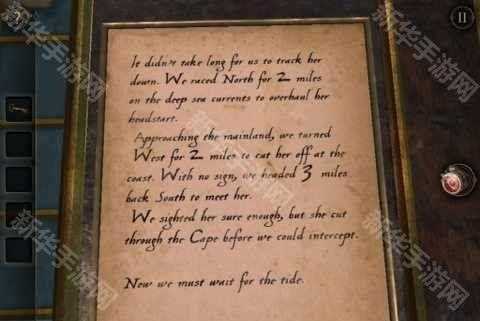 ?
It didn't take long for us to track her
down. We raced North for 2 miles
on the deep sea currents to overhaul her
headstart.
Approaching the mainland, we turned
West for 2 miles to cut her off at the
coast. With no sign, we headed 3 miles
back South to meet her.
We sighted her sure enough, but she cut
through the Cape before we could intercept.
Now we must wait for the tide.
新华手游网
新华手游网
新华手游网
新华手游网
新华手游网
新华手游网
新华手游网
新华手游网
新华手游网